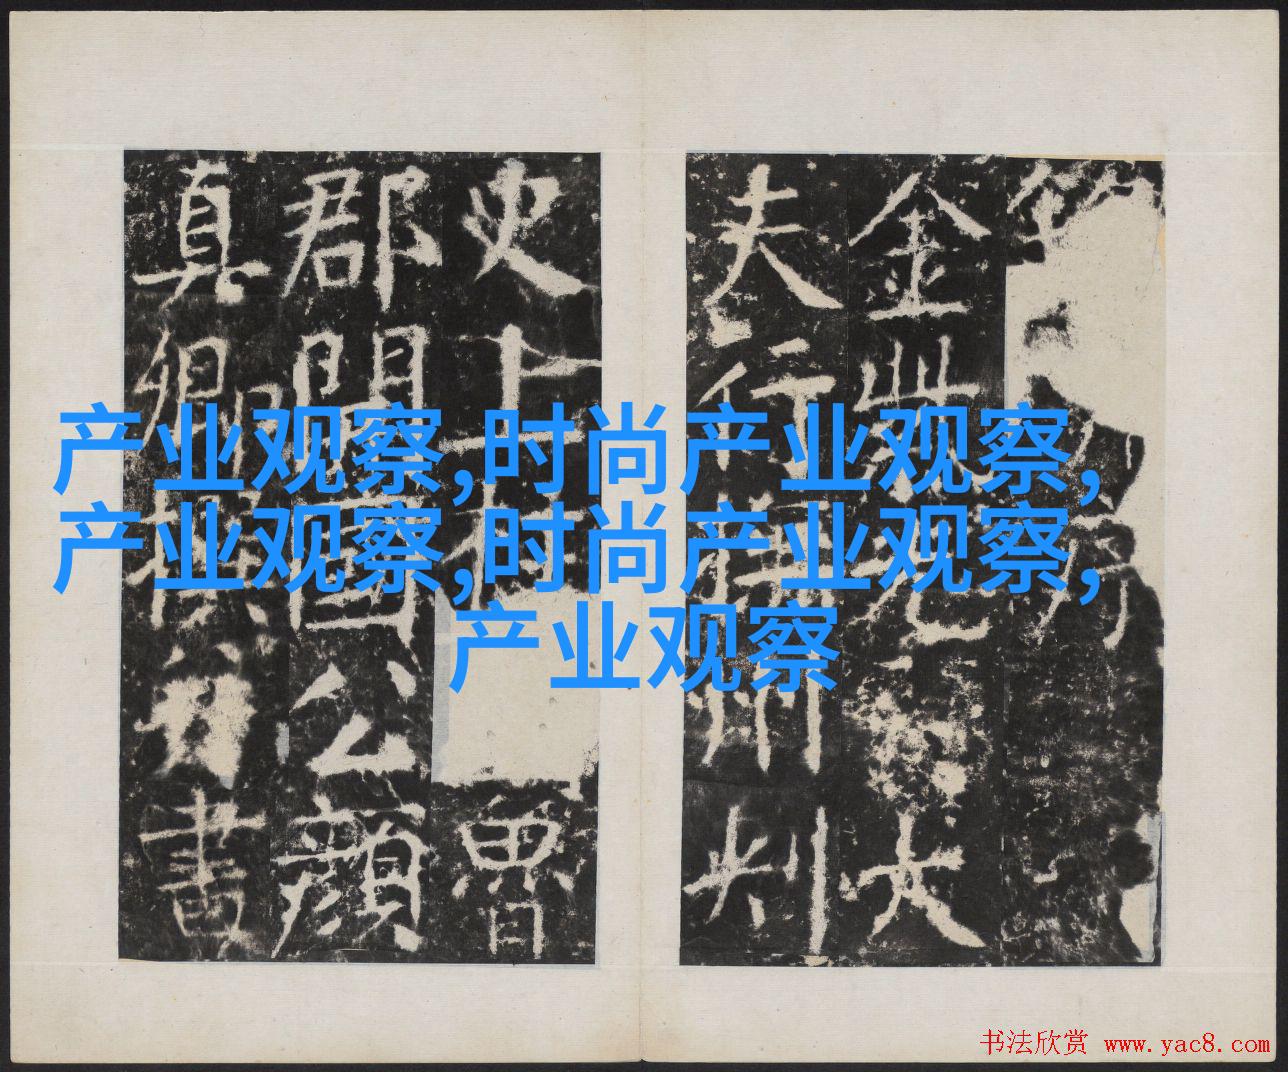 产业观察,时尚产业观察,
产业观察,时尚产业观察,
产业观察
金紫光大
夫行撫州刺
史上柱魯
郡開國公顏
真卿撰書
书法欣赏 www.yac8.com